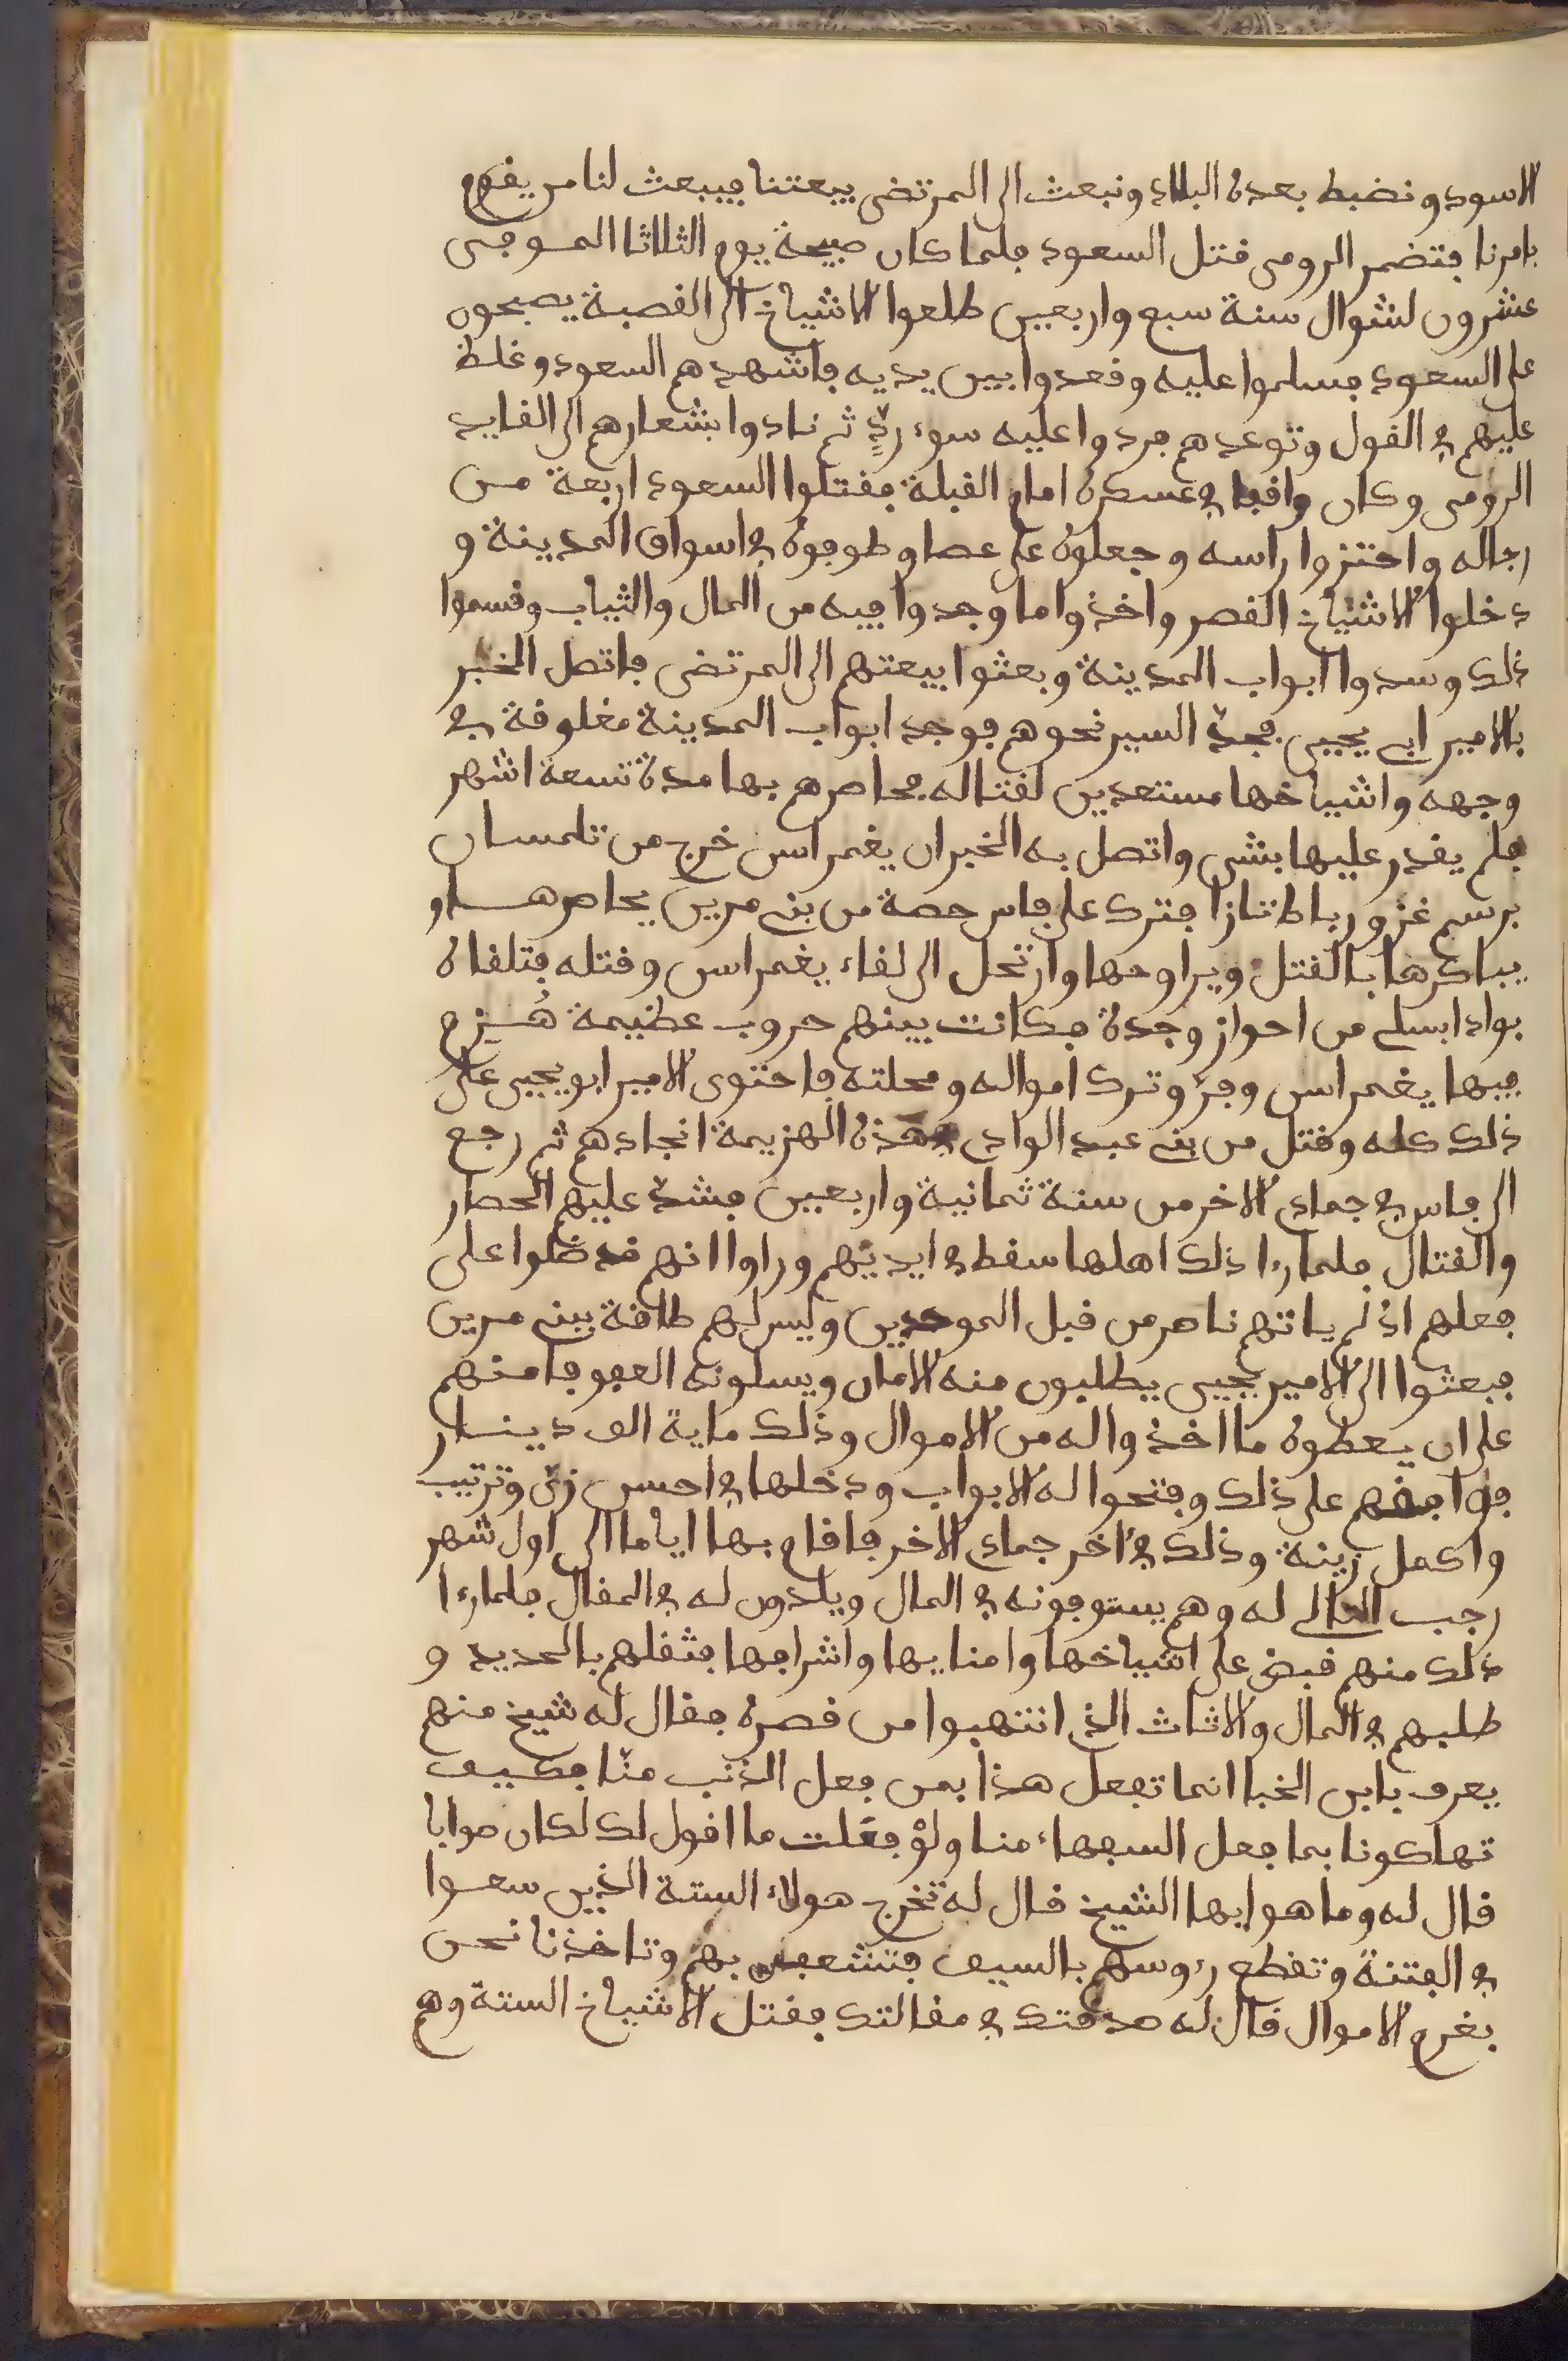 الاسود ونضبط بعده البلاد ونبعث الى المرتضى ببيعتنا فيبعث لنا من يقوم
بامرنا فتضمن الرومى قتل السعود فلما كان صبيحة يوم الثلاثا الموفى
عشرون لشوال سنة سبع واربعين طلعوا الاشياخ الى القصبة يصبحون
على السعود فسلموا عليه وقعدوا بين يديه فاشهدهم السعود وغلظ
عليهم في القول وتوعدهم فردوا عليه سوء ردٍّ ثم نادوا بشعارهم الى القايد
الرومى وكان واقفا في عسكره امام القبلة فقتلوا السعود اربعة من
رجاله واحتزوا راسه وجعلوه على عصا وطوفوه في اسواق المدينة و
دخلوا الاشياخ القصر واخذوا ما وجدوا فيه من المال والثياب وقسموا
ذلك وسدوا ابواب المدينة وبعثوا بيعتهم الى المرتضى فاتصل الخبر
بالامير ابي يحيى فجدّ السير نحوهم فوجد ابواب المدينة مغلوقة في
وجهه واشياخها مستعدين لقتاله فحاصرهم بها مدة تسعة اشهر
فلم يقدر عليها بشى واتصل به الخبر ان يغمراسن خرج من تلمسان
برسم غزو رباط تازا فترك على فاس حصة من بني مرين يحاصرها و
يباكرها بالقتل ويراوحها وارتحل الى لقاء يغمراسن وقتله فتلقاه
بواد ابسلي من احواز وجدة فكانت بينهم حروب عظيمة هُزم
فيها يغمراسن وفرّ وترك امواله ومحلته فاحتوى الامير ابو يحيى على
ذلك كله وقتل من بني عبد الوادى في هذه الهزيمة انجادهم ثم رجع
الى فاس في جمادى الاخر من سنة ثمانية واربعين فشدّ عليهم الحصار
والقتال فلما رءا ذلك اهلها سقط في ايديهم وراوا انهم قد ضلوا على
فعلهم اذ لم ياتهم ناصر من قبل الموحدين وليس لهم طاقة ببني مرين
فبعثوا الى الامير يحيى يطلبون منه الامان ويسلونه العفو فامنهم
على ان يعطوه ما اخذوا له من الاموال وذلك ماية الف دينار
فوافقهم على ذلك وفتحوا له الابواب ودخلها في احسن زيّ وترتيب
واكمل زينة وذلك في اخر جمادى الاخر فاقام بها اياما الى اول شهر
رجب التالي له وهم يستوفونه في المال ويلدون له في المقال فلما رءا
ذلك منهم قبض على اشياخها وامنايها واشرافها فثقلهم بالحديد و
طلبهم في المال والاثاث الذى انتهبوا من قصره فقال له شيخ منهم
يعرف بابن الخبا انما تفعل هذا بمن فعل الذنب منّا فكيف
تهلكونا بما فعل السفهاء منا ولوْ فعَلت ما اقول لك لكان صوابا
قال له وما هو ايها الشيخ قال له تخرج هولاء الستة الذين سعوا
في الفتنة وتقطع رءوسهم بالسيف فتشعبن بهم وتاخذنا نحن
بغرم الاموال قال له صدقتك في مقالتك فقتل الاشياخ الستة وهم